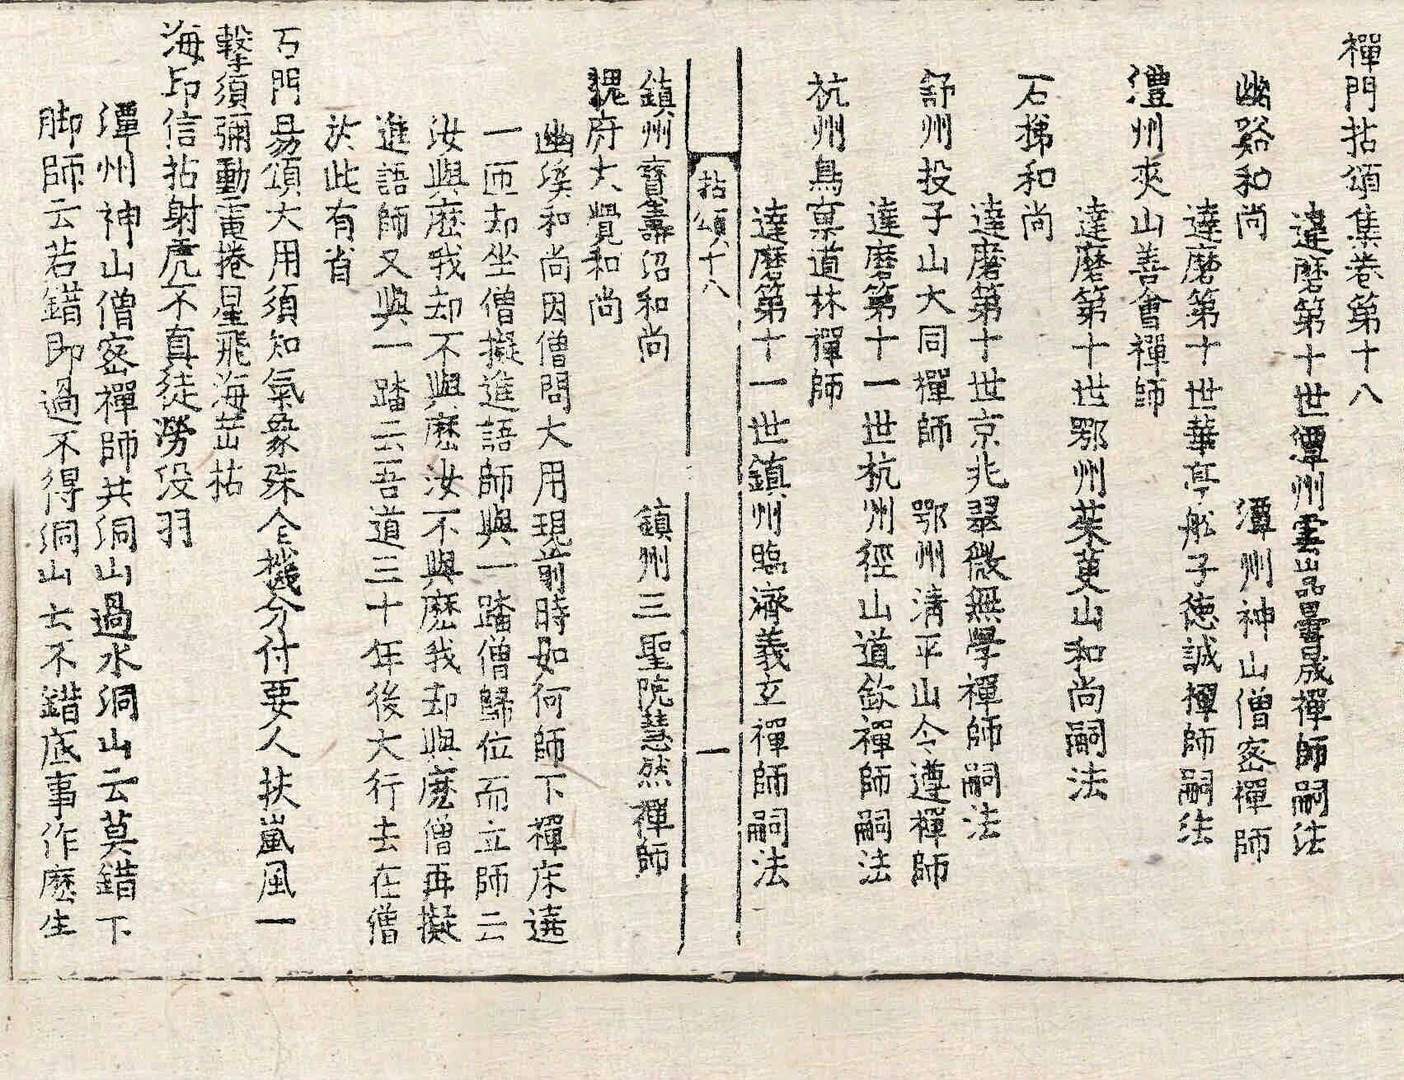 禪門拈頌集卷第十八
達磨第十世潭州雲嵓曇晟禪師嗣法
幽谿和尚　潭州神山僧密禪師
達磨第十世華亭舡子德誠禪師嗣法
澧州夾山善會禪師
達磨第十世鄂州茱萸山和尚嗣法
石梯和尚
達磨第十世京兆翠微無學禪師嗣法
舒州投子山大同禪師　鄂州淸平山令遵禪師
達磨第十一世杭州徑山道欽禪師嗣法
杭州鳥窠道林禪師
達磨第十一世鎭州臨濟義玄禪師嗣法
拈頌十八　一
鎭州寶壽沼和尚　鎭州三聖院慧然禪師
魏府大覺和尚
幽溪和尚因僧問大用現前時如何師下禪床遶
一匝却坐僧擬進語師與一踏僧歸位而立師云
汝與麽我却不與麽汝不與麽我却與麽僧再擬
進語師又與一踏云吾道三十年後大行去在僧
於此有省
石門易頌大用須知氣象殊全機分付要人扶嵐風一
擊須彌動電捲星飛海岳枯
海印信拈射虎不真徒勞沒羽
潭州神山僧密禪師共洞山過水洞山云莫錯下
脚師云若錯即過不得洞山云不錯底事作麽生